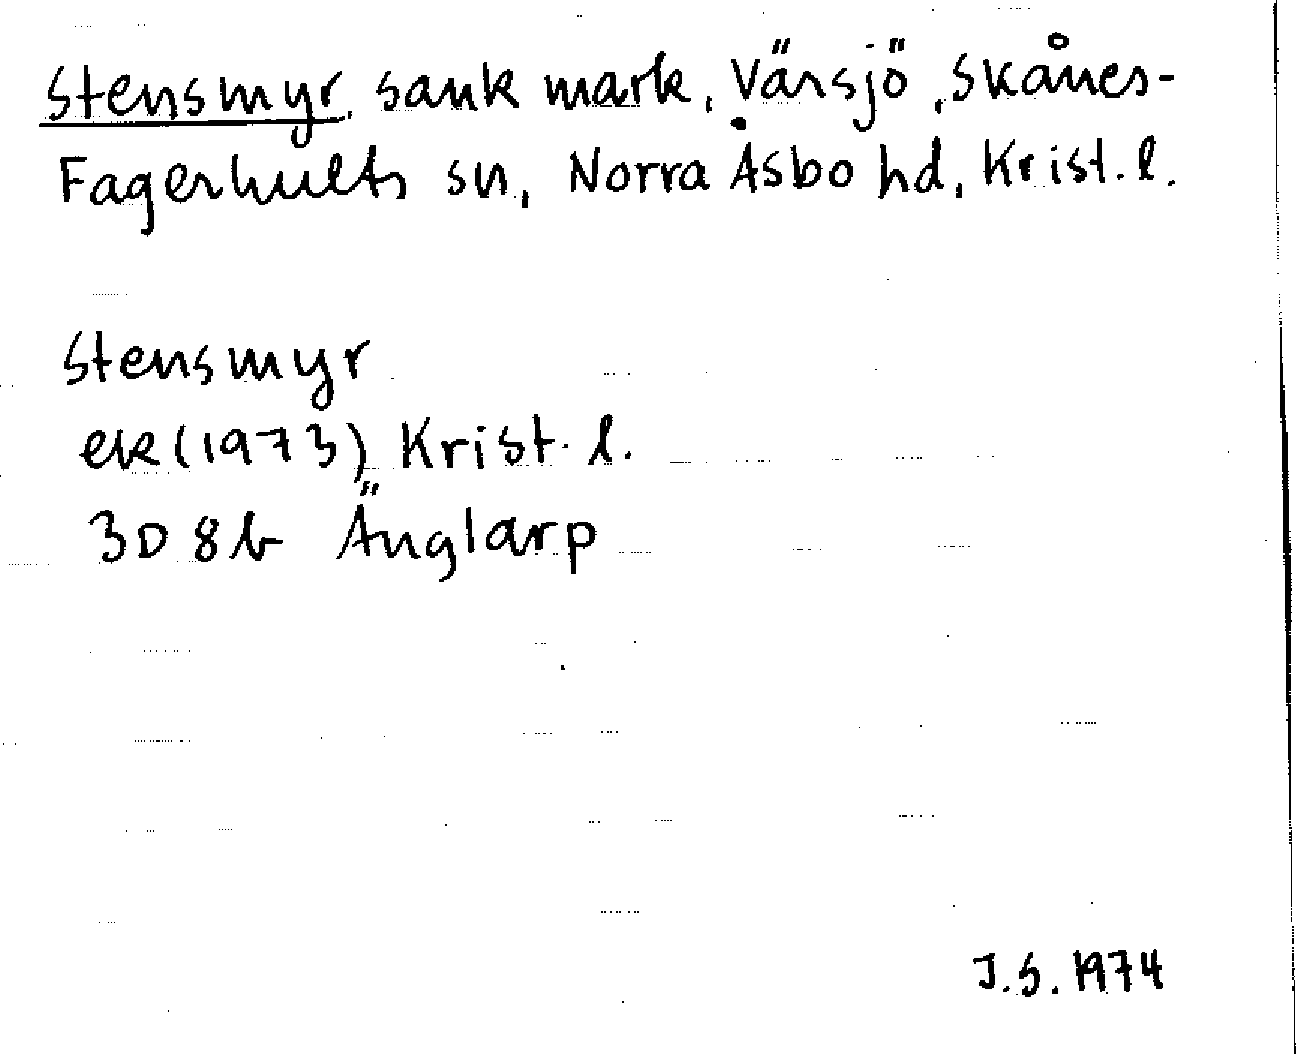 Stensmyr, sank mark, Värsjö, Skånes-
Fagerhults sn, Norra Åsbo hd, Krist. l.
Stensmyr
ek (1973) Krist. l.
3D 8b Änglarp
J.S. 1974